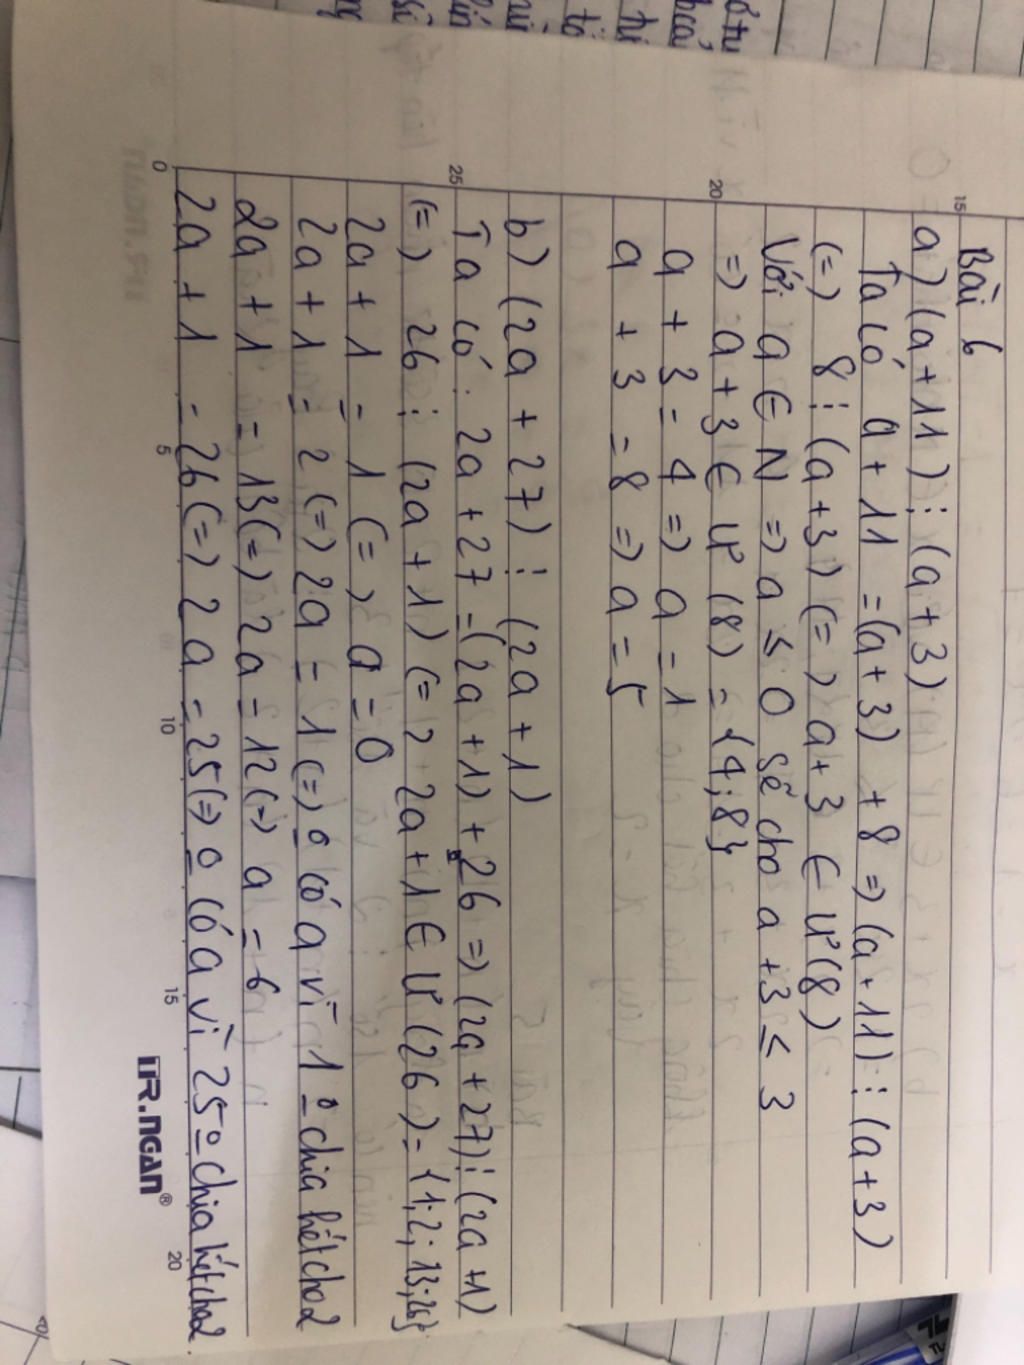 Bài 6
a) (a + 11) ⋮ (a + 3)
Ta có a + 11 = (a + 3) + 8 => (a + 11) ⋮ (a + 3)
(=) 8 ⋮ (a + 3) (=) a + 3 ∈ Ư (8)
Với a ∈ N => a ≤ 0 sẽ cho a + 3 ≤ 3
=> a + 3 ∈ Ư (8) = {4; 8}
a + 3 = 4 => a = 1
a + 3 = 8 => a = 5
b) (2a + 27) ⋮ (2a + 1)
Ta có: 2a + 27 = (2a + 1) + 26 => (2a + 27) ⋮ (2a + 1)
(=) 26 ⋮ (2a + 1) (=) 2a + 1 ∈ Ư (26) = {1; 2; 13; 26}
2a + 1 = 1 (=) a = 0
2a + 1 = 2 (=) 2a = 1 (=) o có a vì 1 o chia hết cho 2
2a + 1 = 13 (=) 2a = 12 (=) a = 6
2a + 1 = 26 (=) 2a = 25 (=) o có a vì 25 o chia hết cho 2.
TR.NGAN®
0 5 10 15 20
15
20
25